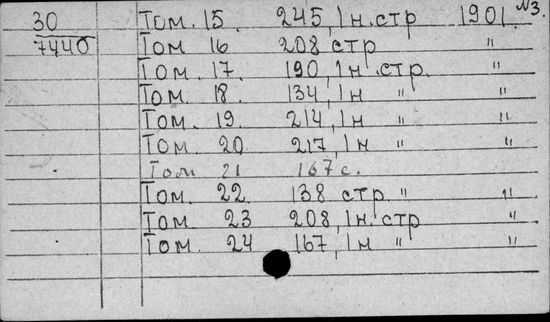 №3.
30 Том. 15. 245, 1н. стр 1901.
7440 Том 16 208 стр "
Том. 17. 190, 1н. стр. "
Том. 18. 134, 1н " "
Том. 19. 214, 1н " "
Том. 20 217, 1н " "
Том 21 167 с.
Том. 22. 138 стр. " "
Том. 23 208, 1н. стр "
Том. 24 167, 1н " "